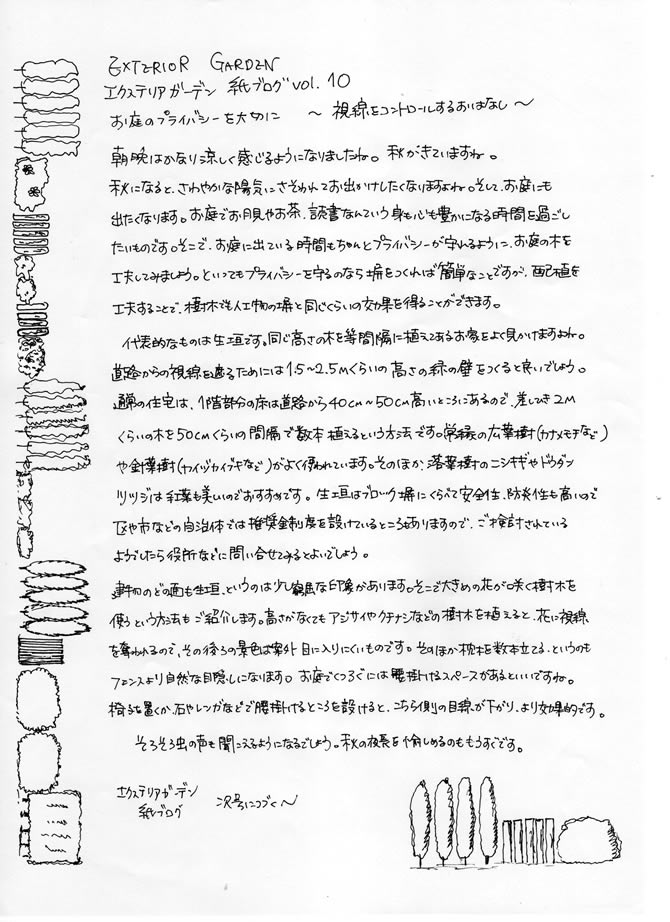 EXTERIOR GARDEN
エクステリアガーデン 紙ブログ vol. 10
お庭のプライバシーを大切に 〜 視線をコントロールするおはなし 〜
朝晩はかなり涼しく感じるようになりましたね。秋がきていますね。
秋になると、さわやかな陽気にさそわれてお出かけしたくなりますよね。そして、お庭にも
出たくなります。お庭でお月見やお茶、読書なんていう身も心も豊かになる時間を過ごし
たいものです。そこで、お庭に出ている時間もちゃんとプライバシーが守れるように、お庭の木を
工夫してみましょう。といってもプライバシーを守るのなら塀をつくれば簡単なことですが、配植を
工夫することで、樹木でも人工物の塀と同じくらいの効果を得ることができます。
代表的なものは生垣です。同じ高さの木を等間隔に植えてあるお家をよく見かけますよね。
道路からの視線を遮るためには1.5〜2.5Mくらいの高さの緑の壁をつくると良いでしょう。
通常の住宅は、1階部分の床は道路から40cm〜50cm高いところにあるので、差しひき2M
くらいの木を50cmくらいの間隔で数本植えるという方法です。常緑の広葉樹(カナメモチなど)
や針葉樹(カイヅカイブキなど)がよく使われています。そのほか、落葉樹のニシキギやドウダン
ツツジは紅葉も美しいのでおすすめです。生垣はブロック塀にくらべて安全性、防炎性も高いので
区や市などの自治体では推奨金制度を設けているところもありますので、ご検討されている
ようでしたら役所などに問い合せてみるとよいでしょう。
建物のどの面も生垣、というのは少し窮屈な印象があります。そこで大きめの花が咲く樹木を
使うという方法もご紹介します。高さがなくてもアジサイやクチナシなどの樹木を植えると、花に視線
を奪われるので、その後ろの景色は案外目に入りにくいものです。そのほか枕木を数本立てる、というのも
フェンスより自然な目隠しになります。お庭でくつろぐには腰掛けるスペースがあるといいですね。
椅子を置くか、石やレンガなどで腰掛けるところを設けると、こちら側の目線が下がり、より効果的です。
そろそろ虫の声も聞こえるようになるでしょう。秋の夜長を愉しめるのももうすぐです。
エクステリアガーデン
紙ブログ 次号につづく〜